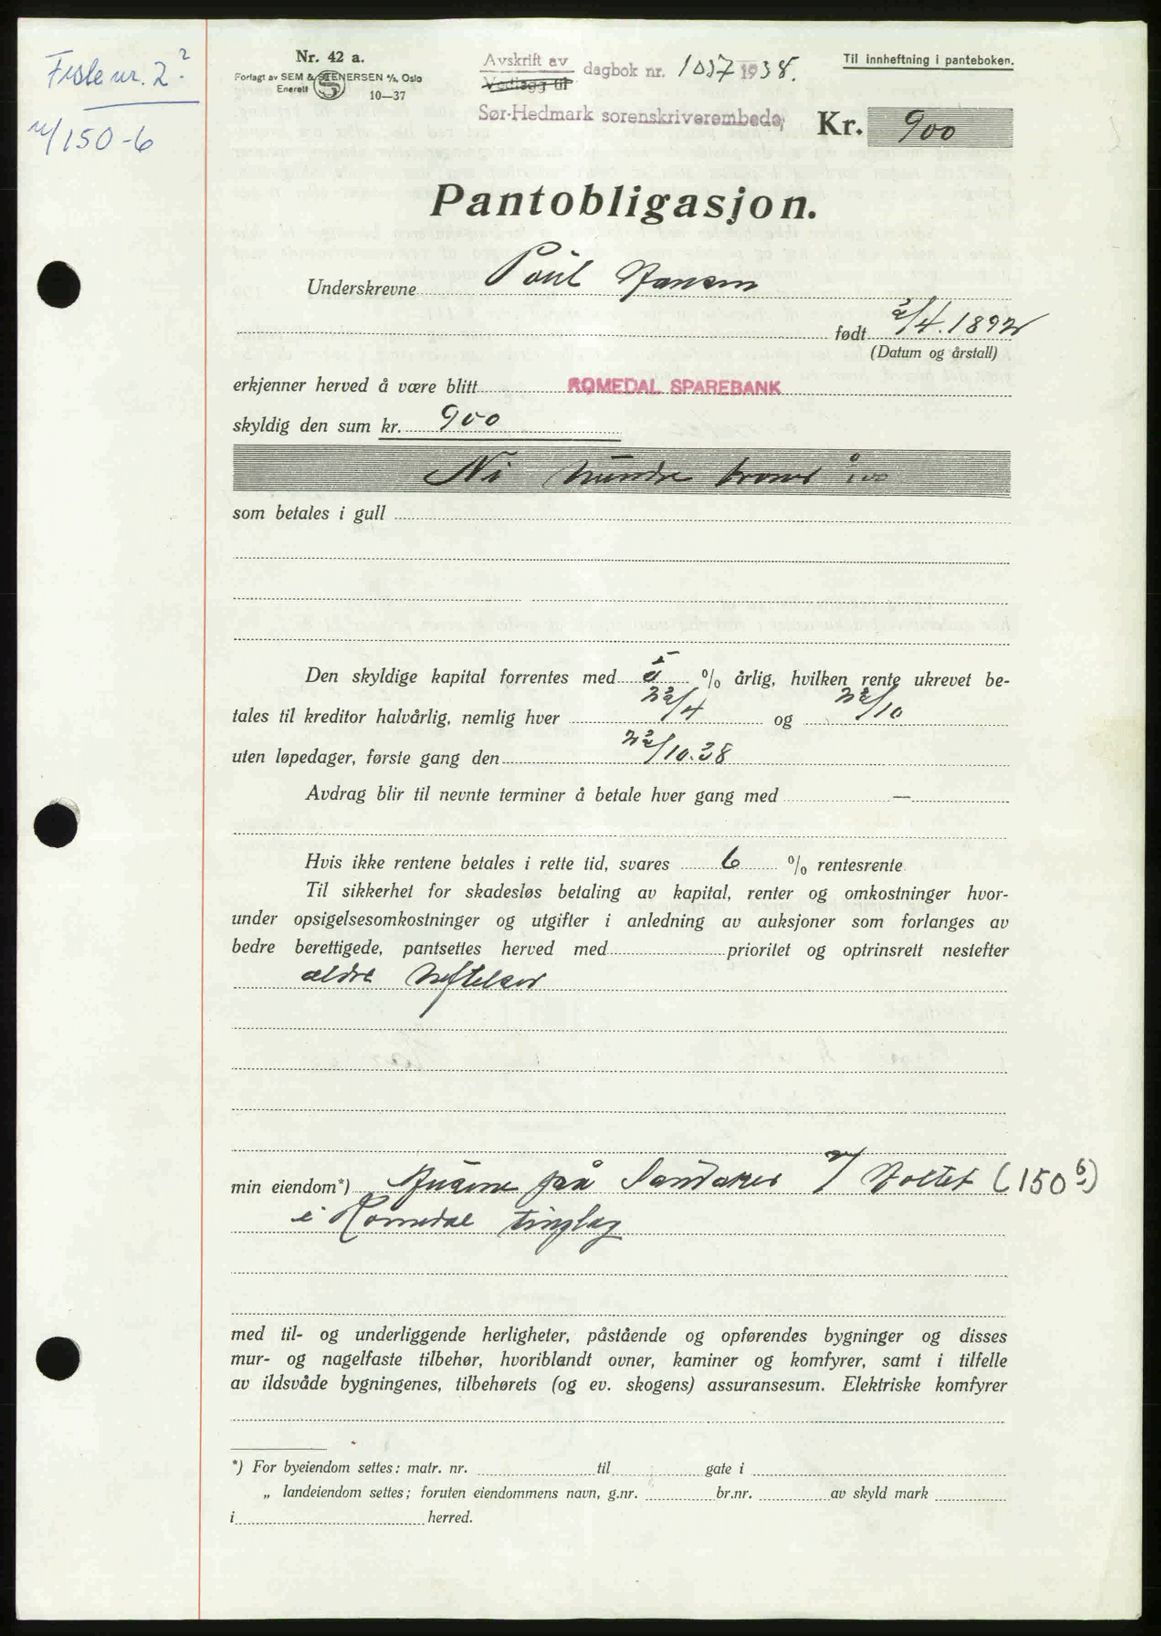 Feste nr. 2?
v/150-6
Nr. 42 a.
Forlagt av SEM & STENERSEN A/S, Oslo
Enerett 10—37
Avskrift av
Vedlegg til
dagbok nr. 1037 1938.
Sør-Hedmark sorenskriverembede,
Til innheftning i panteboken.
Kr. 900
Pantobligasjon.
Underskrevne Poul Jansen
født 2/4. 1892
(Datum og årstall)
erkjenner herved å være blitt ROMEDAL SPAREBANK
skyldig den sum kr. 900
Ni hundre kroner
som betales i gull
Den skyldige kapital forrentes med 5 % årlig, hvilken rente ukrevet be-
tales til kreditor halvårlig, nemlig hver 22/4 og 22/10
uten løpedager, første gang den 22/10.38
Avdrag blir til nevnte terminer å betale hver gang med —
Hvis ikke rentene betales i rette tid, svares 6 % rentesrente
Til sikkerhet for skadesløs betaling av kapital, renter og omkostninger hvor-
under opsigelsesomkostninger og utgifter i anledning av auksjoner som forlanges av
bedre berettigede, pantsettes herved med prioritet og optrinsrett nestefter
eldre heftelser
min eiendom*) Husene på Sandaker v/ (150 6)
i Romedal tinglag
med til- og underliggende herligheter, påstående og opførendes bygninger og disses
mur- og nagelfaste tilbehør, hvoriblandt ovner, kaminer og komfyrer, samt i tilfelle
av ildsvåde bygningenes, tilbehørets (og ev. skogens) assuransesum. Elektriske komfyrer
*) For byeiendom settes: matr. nr. til gate i
„ landeiendom settes; foruten eiendommens navn, g.nr. br.nr. av skyld mark
i herred.